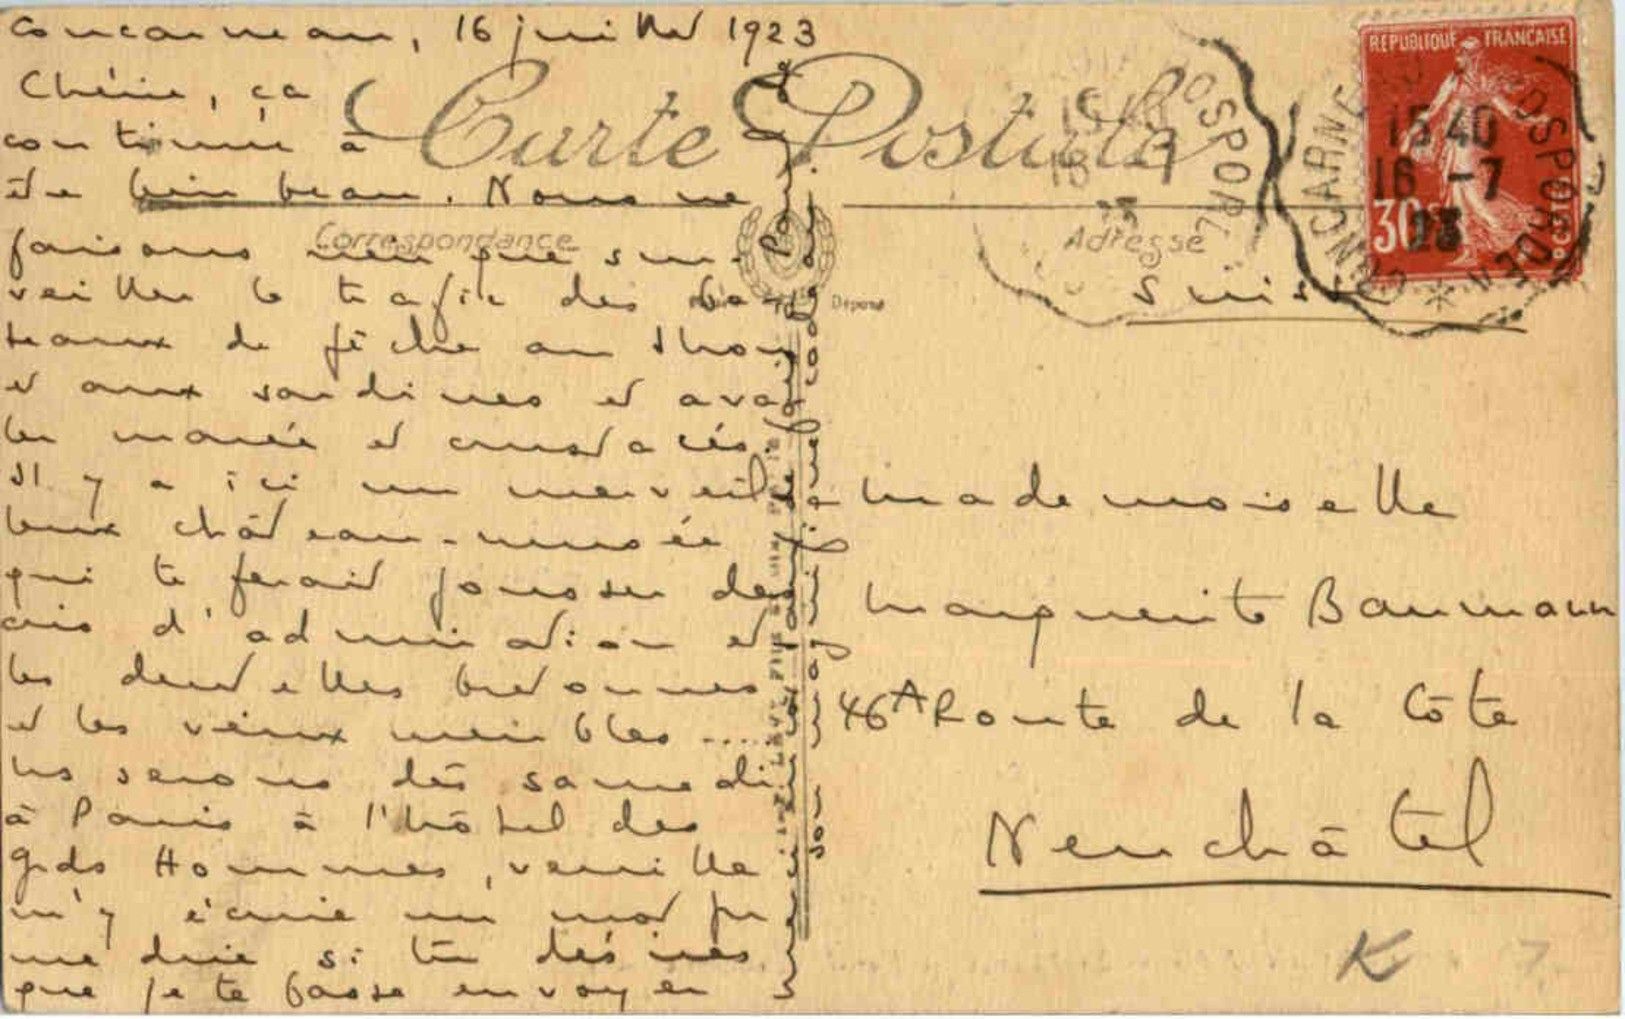 Concarneau, 16 juillet 1923
Chérie, ça
continue à
être bien beau. Nous ne
faisons rien que sur-
veiller le trafic des ba-
teaux de pêche au thon
et aux sardines et ava-
ler marée et crustacés.
Il y a ici un merveil-
leux château-musée
qui te ferait pousser des
cris d'admiration et
les dentelles bretonnes
et les vieux meubles ....
ns serons dès samedi
à Paris à l'hôtel des
gds Hommes, veuille
m'y écrire un mot pr
me dire si tu désires
que je te fasse envoyer
Carte Postale
Correspondance
Adresse
Déposé
REPUBLIQUE FRANÇAISE
30c
POSTES
CONCARNEAU A ROSPORDEN
15 40
16 -7
23
Suisse
Mademoiselle
Marguerite Baumann
46A Route de la Côte
Neuchâtel
K